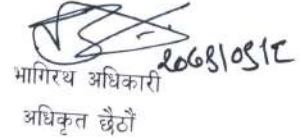 २०७१/०९/१८
भागिरथ अधिकारी
अधिकृत छैठौं